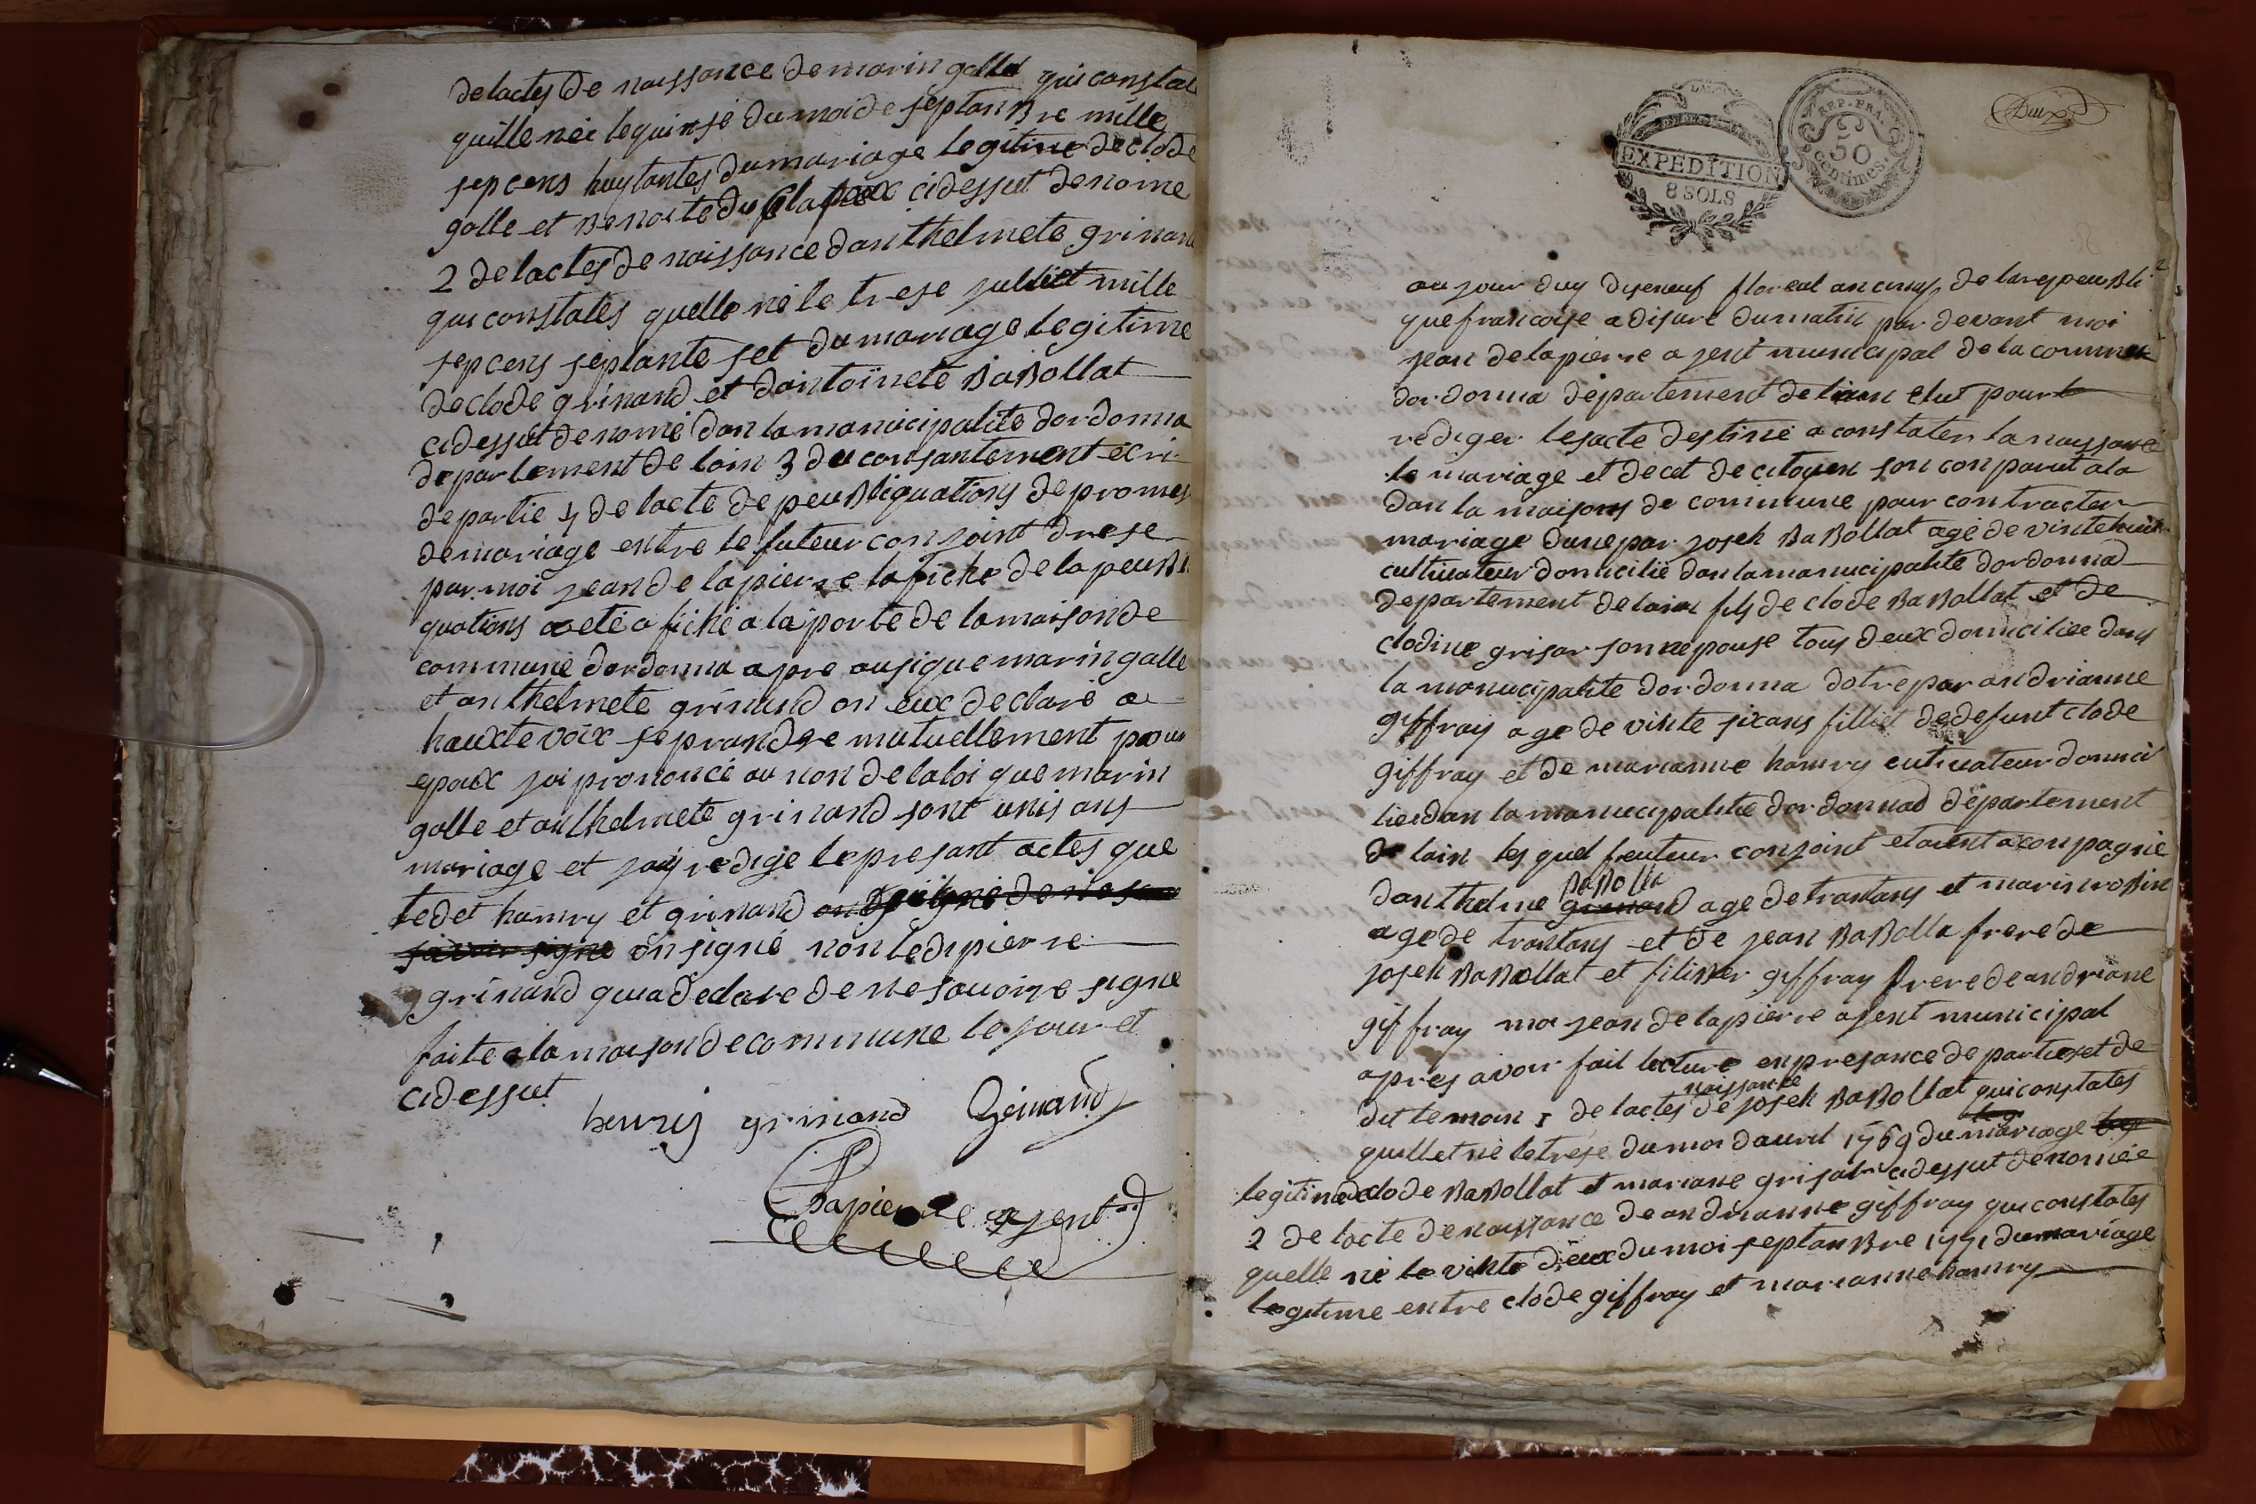 de lactes de naissance de marin galle qui constat
quille neé le quinse du moi de septanBre mille
sepcens huytantes du mariage legitime de clode
galle et Benoite du plapeux cidessut denome
2 de lactes de naissance danthelmete grinand
qui constates quelle né le trese julliet mille
sepcens septante set du mariage legitime
de clode grinand et dantoinete BaBollat
cidessut denomé dan la manucipalite dordonna
departement de loin 3 de consantement ecri
de partie 4 de lacte de peuBliquations de promes
de mariage entre le futeur conjoint drese
par moi jean de lapierre lafiche de la peuBli
quations a eté afiché a la porte de la maison de
commune dordonna apre ausi que marin galle
et anthelmete grinand on eux declaré a
hauxte voix se prandre mutuellement pour
epoux jai prononcé au non de la loi que marin
galle et anthelmete grinand sont unis ans
mariage et jay redige le presant actes que
ledet hanry et grinand
savoir signe on signé non ledi pierre
grinand qui a declare de ne savoire signe
faite a la maison de commune le jour et
cidessut
henrij grinand Geinand
Lapierre ajent
EXPEDITION
8 SOLS
REP. FRA.
50
centimes.
Deux
2
au jour duy diseneuf floreal an cinq de la respeuBli
que francoise a dis ure du matin par devant moi
jean de lapierre ajent municipal de la commune
dordonna departement de lain elut pour
rediger lesacte destiné a constater la naissance
le mariage et decet de citoyen son conparut a la
dan la maisons de commune pour contracter
mariage dune par joseh BaBollat agé de vintehuit
cultivateur domicilié dan la manucipalité dordonna
departement de lain fils de clode BaBollat et de
clodine grisar sonnepouse tous deux domicilieé dans
la manucipalité dordonna dotre par andrianne
giffray age de vinte sixans filliet de defunt clode
giffray et de marianne hanry cutivateur domici
lie dan la manucipalité dordonnad departement
de lain les quel feuteur conjoint etaient aconpagnié
BaBolla
danthelme grinand age de trantans et marin roBin
age de trantans et de jean BaBolla frere de
joseh BaBollat et filiBer giffray frere de andriane
giffray moi jean de lapierre ajent municipal
apres avoir fait lecture en presance de parties et de
naissance
det temoin 1 de lactes de joseh BaBollat qui constates
quillet né le trese du moi davril 1769 du mariage
legitime de clode BaBollat et mariane grisar cidessut denomée
2 de lacte de naissance de andrianne giffray qui constates
quelle né le vinte deux du moi septanBre 1771 du mariage
legitime entre clode giffray et marianne hanry